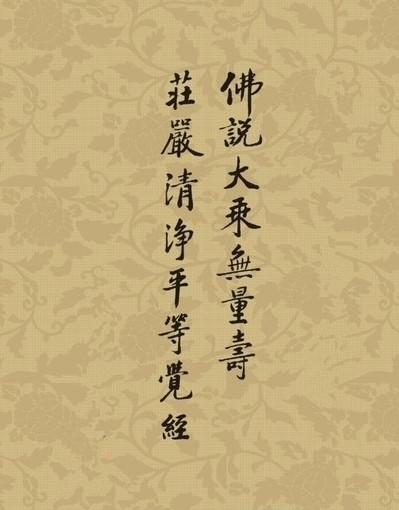 佛說大乘無量壽
莊嚴清淨平等覺經